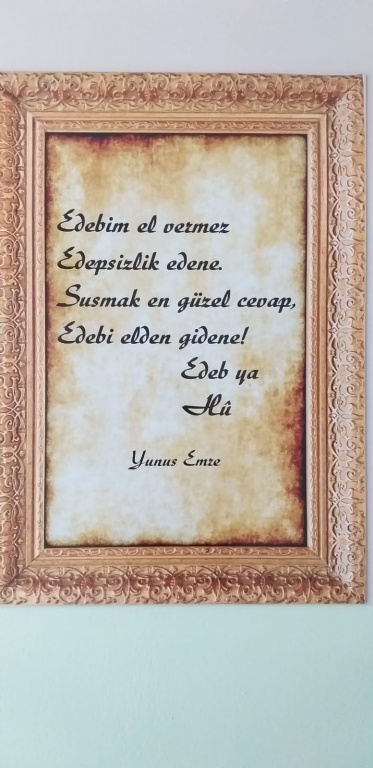 Edebim el vermez
Edepsizlik edene.
Susmak en güzel cevap,
Edebi elden gidene!
Edeb ya
Hû
Yunus Emre